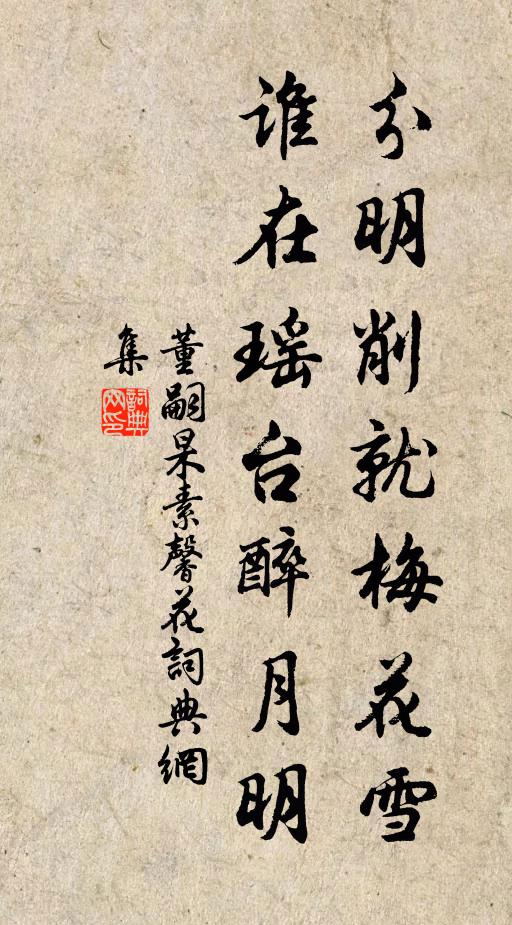 分明削就梅花雪
誰在瑶台醉月明
董嗣杲素馨花詞典網
集
詞典网印